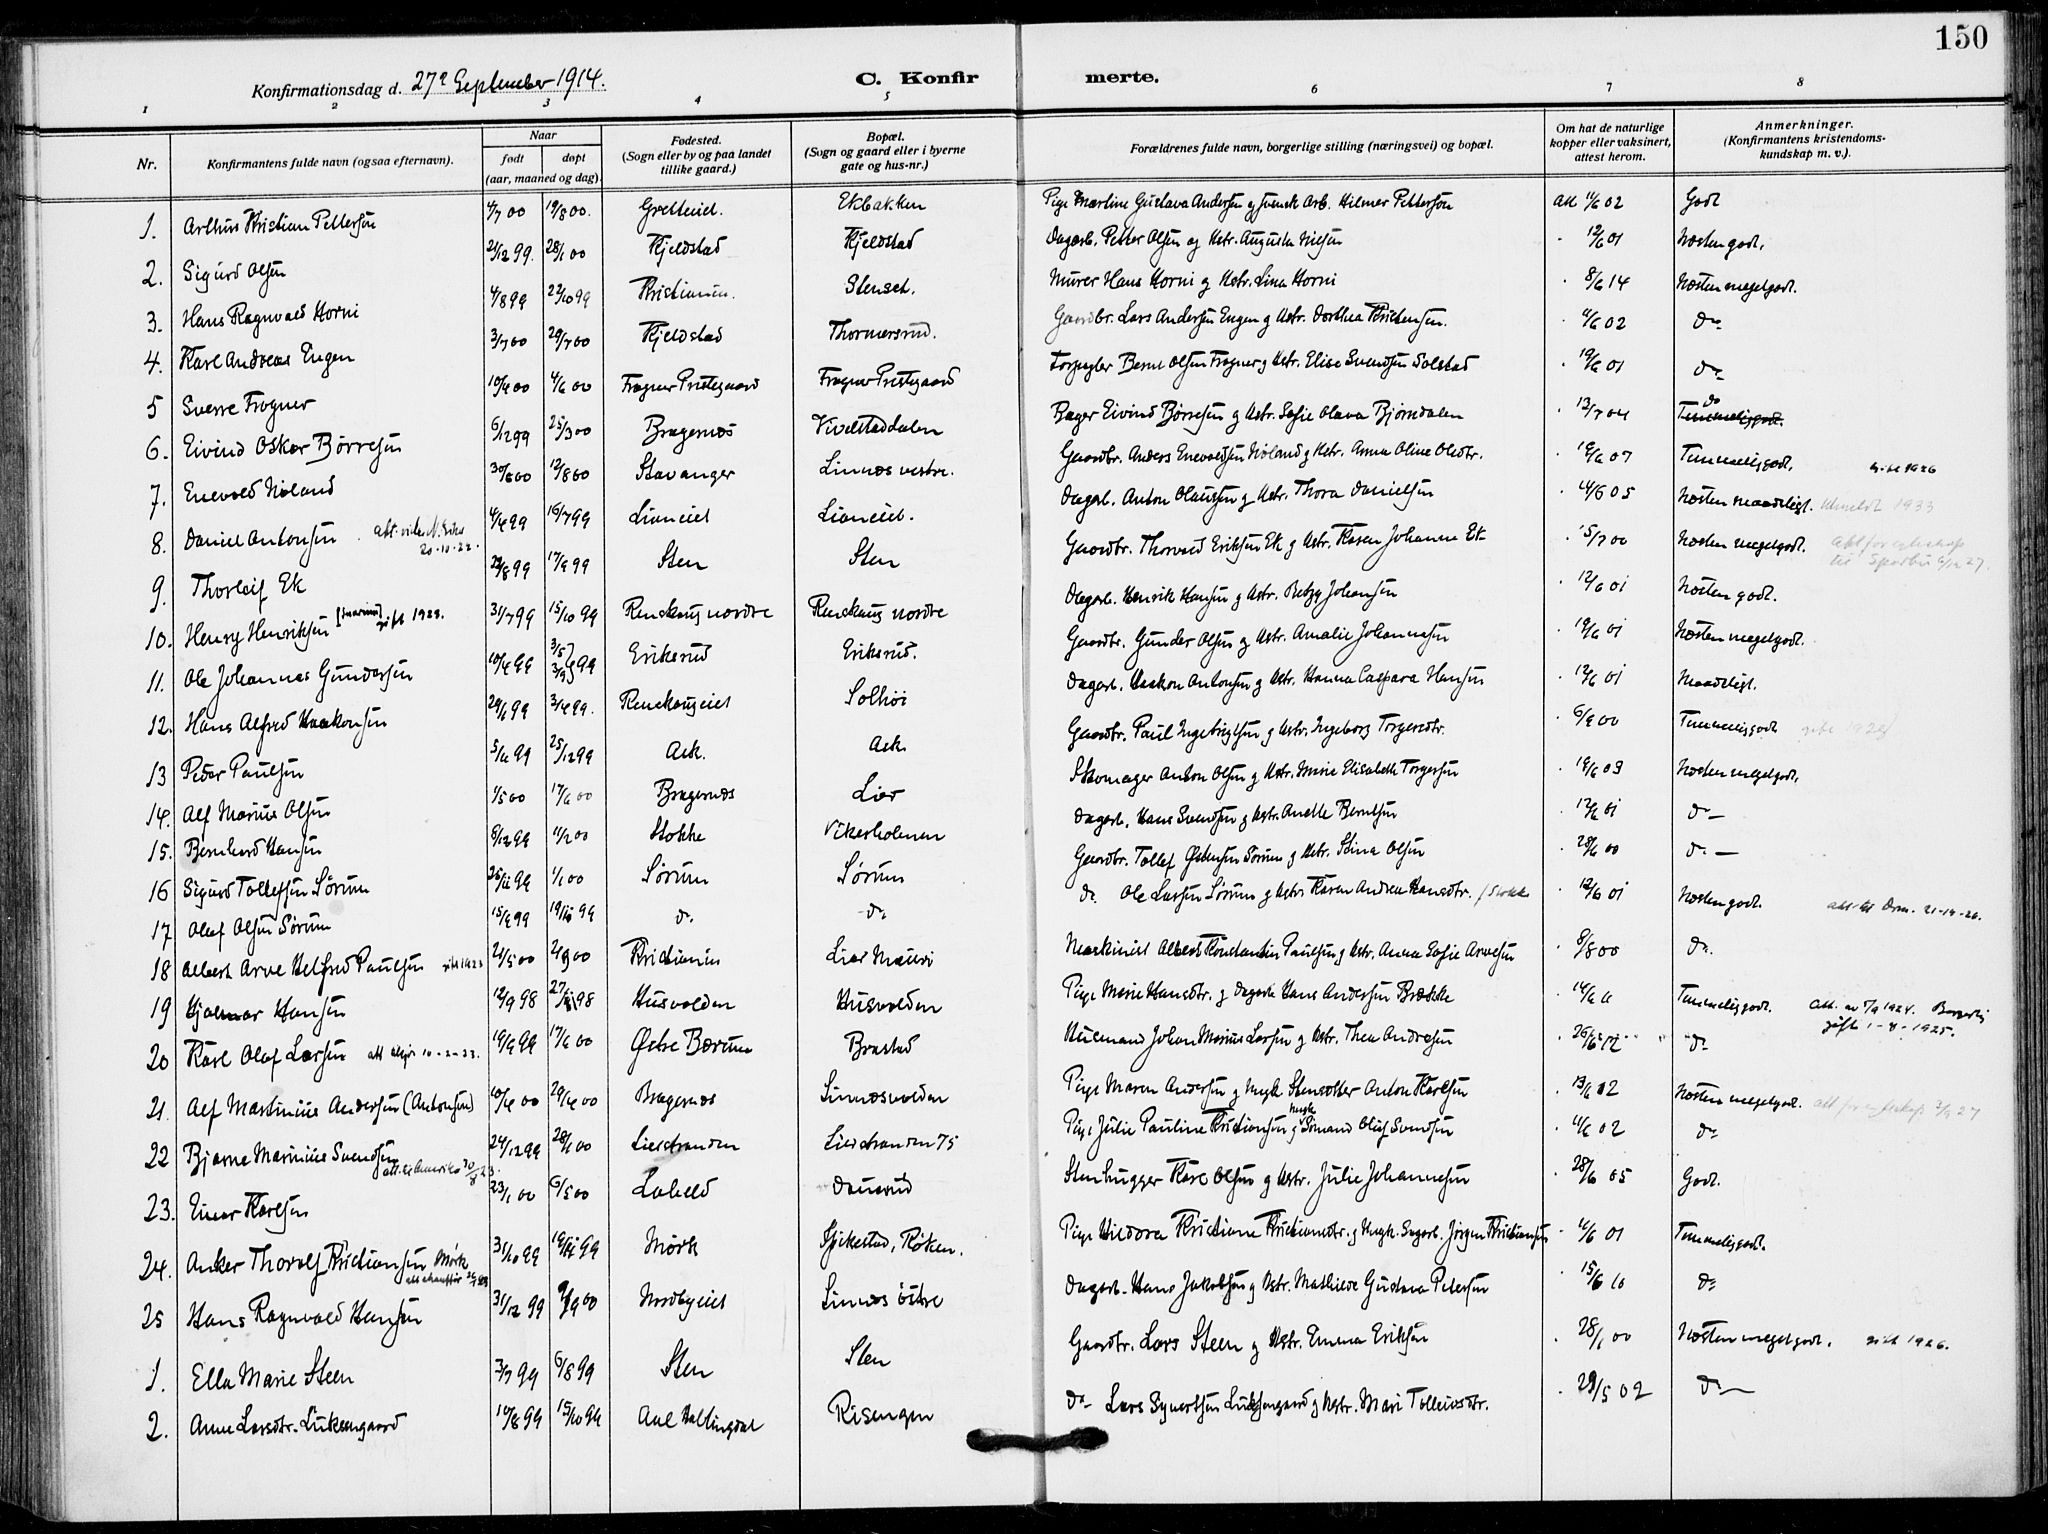 150
Konfirmationsdag d. 27de September 1914. C. Konfir merte.
1 2 3 4 5 6 7 8
Nr. Konfirmantens fulde navn (ogsaa efternavn). Naar født døpt (aar, maaned og dag). Fødested. (Sogn eller by og paa landet tillike gaard.) Bopæl. (Sogn og gaard eller i byerne gate og hus-nr.) Forældrenes fulde navn, borgerlige stilling (næringsvei) og bopæl. Om hat de naturlige kopper eller vaksinert, attest herom. Anmerkninger. (Konfirmantens kristendoms-kundskap m. v.).
1. Arthur Kristian Pettersen 4/7 00 19/8 00. Gretteiet. Ekbakken Pige Martine Gustava Andersen og svensk Arb. Hilmer Pettersen Att 11/6 02 Godt
2. Sigurd Olsen 21/12 99. 28/1 00 Kjeldstad Kjeldstad Dagarb. Petter Olsen og Hstr. Augusta Nielsen 12/6 01 Næsten godt.
3. Hans Ragnvald Horni 4/8 99 22/10 99 Kristiania. Stenset. Murer Hans Horni og Hstr. Lina Horni 8/6 14 Næsten meget godt.
4. Karl Andreas Engen 3/7 00 29/7 00 Kjeldstad Thormersrud. Gaardbr. Lars Andersen Engen og Hstr. Dorthea Kristensen. 4/6 02 do
5 Sverre Frogner 10/4 00 4/6 00 Frogner Prestegaard Frogner Prestegaard Forpagter Bernt Olsen Frogner og Hstr. Elise Svendsen Solstad 19/6 01 do
6. Eivind Oskar Børresen 6/12 99 25/3 00 Bragernes Vivelstaddalen Bager Eivind Børresen og Hstr. Sofie Olava Bjørndalen 13/7 04 Temmelig godt. do
7. Enevold Høland 30/6 00 12/8 00 Stavanger Linnes vestre. Gaardbr. Anders Enevoldsen Høland og Hstr. Anna Oline Olsdtr. 19/6 07 Temmelig godt. gift 1926
8. Daniel Antonsen 4/4 99 16/7 99 Lianeiet Lianeiet. Dagarb. Anton Olausen og Hstr. Thora Danielsen 14/6 05 Næsten maadeligt. Utmeldt 1933
20-10-22.
9. Thorleif Ek 22/8 99 17/9 99 Sten Sten Gaardbr. Thorvald Eriksen Ek og Hstr. Karen Johanne Ek 5/7 00 Næsten meget godt.
10. Henry Henriksen gift 1928. 31/7 99 15/10 99 Renskaug nordre Renskaug nordre Dagarb. Henrik Hansen og Hstr. Betzy Johansen 12/6 01 Næsten godt.
11. Ole Johannes Gundersen 10/4 99 Eriksrud Eriksrud. Gaardbr. Gunder Olsen og Hstr. Amalie Johannesen 19/6 01 Næsten meget godt.
12. Hans Alfred Haakonsen 29/1 99 3/4 99. Renskaugeiet Solhöi Dagarb. Haakon Antonsen og Hstr. Hanna Caspara Hansen 12/6 01 Maadeligt.
13 Peder Paulsen 5/11 99 25/12 99 Ask. Ask. Gaardbr. Paul Ingebrigtsen og Hstr. Ingeborg Torgersdtr. 6/9 00 Temmelig godt
14. Alf Marius Olsen 1/5 00 17/6 00 Bragernes Lier Skomager Anton Olsen og Hstr. Marie Elisabeth Torgersen 19/6 03 Næsten meget godt.
15. Bernhard Hansen 8/12 99 11/2 00 Stokke Vikerholmen Dagarb. Hans Svendsen og Hstr. Anette Berntsen 12/6 01 do
16 Sigurd Tollefsen Sørum 26/11 99 1/1 00 Sørum Sørum Gaardbr. Tollef Østensen Sørum og Hstr. Stina Olsen 28/6 00 do
17 Olaf Olsen Sørum 15/9 99 19/11 99 do. do. do. Ole Larsen Sørum og Hstr. Karen Andrea Hansdtr. / Stokke 12/6 01 Næsten godt.
18 Albert Arve Helfred Paulsen gift 1923 21/5 00 Kristiania Lier Mæieri Maskinist Albert Konstantin Paulsen og Hstr. Anna Sofie Arvesen 8/8 00 do.
19 Hjalmar Hansen 12/9 98 27/11 98 Husvolden Husvolden Pige Marie Hansdtr. og Dagarb. Hans Andersen Brække Temmelig godt. gift 1-8-1925.
20 Karl Olaf Larsen 19/9 99 17/6 00 Østre Bærum Brastad Husmand Johan Marius Larsen og Hstr. Thea Andresen 26/6 12 do
21. Alf Martinius Andersen (Antonsen) 10/4 00 29/4 00 Bragernes Linnesvolden Pige Maren Andersen og Ungk. Stensætter Anton Karlsen 13/6 12 Næsten meget godt.
22 Bjarne Marinius Svendsen 24/12 99 28/1 00 Lierstranden Lierstranden 75 Pige Julie Pauline Kristiansen og ungk. Sømand Oluf Svendsen 11/6 02 do
23. Einar Karlsen 23/1 00 6/5 00 Labeld Dauerud Stenhugger Karl Olsen og Hstr. Julie Johannesen 28/6 05 Godt.
24. Anker Thorolf Kristiansen Mørk 31/10 99 19/11 99 Mørk Spikestad, Røken. Pige Hildora Kristiane Kristiansdtr. og Ungk. Sagarb. Jørgen Kristiansen 11/6 01 Temmelig godt.
25 Hans Ragnvald Hansen 31/12 99 Nordbyeiet Linnes östre Dagarb. Hans Jakobsen og Hstr. Mathilde Gustava Petersen 15/6 10 do
1. Ella Marie Steen 3/7 99 6/8 99 Sten Sten Gaardbr. Lars Steen og Hstr. Emma Eriksen 28/1 00 Næsten meget godt. gift 1926.
2. Anne Larsdtr. Luksengaard 10/8 99 15/10 99 Aal Hallingdal Risengen do Lars Syvertsen Luksengaard og Hstr. Mari Tolleivsdtr. 29/5 02 do